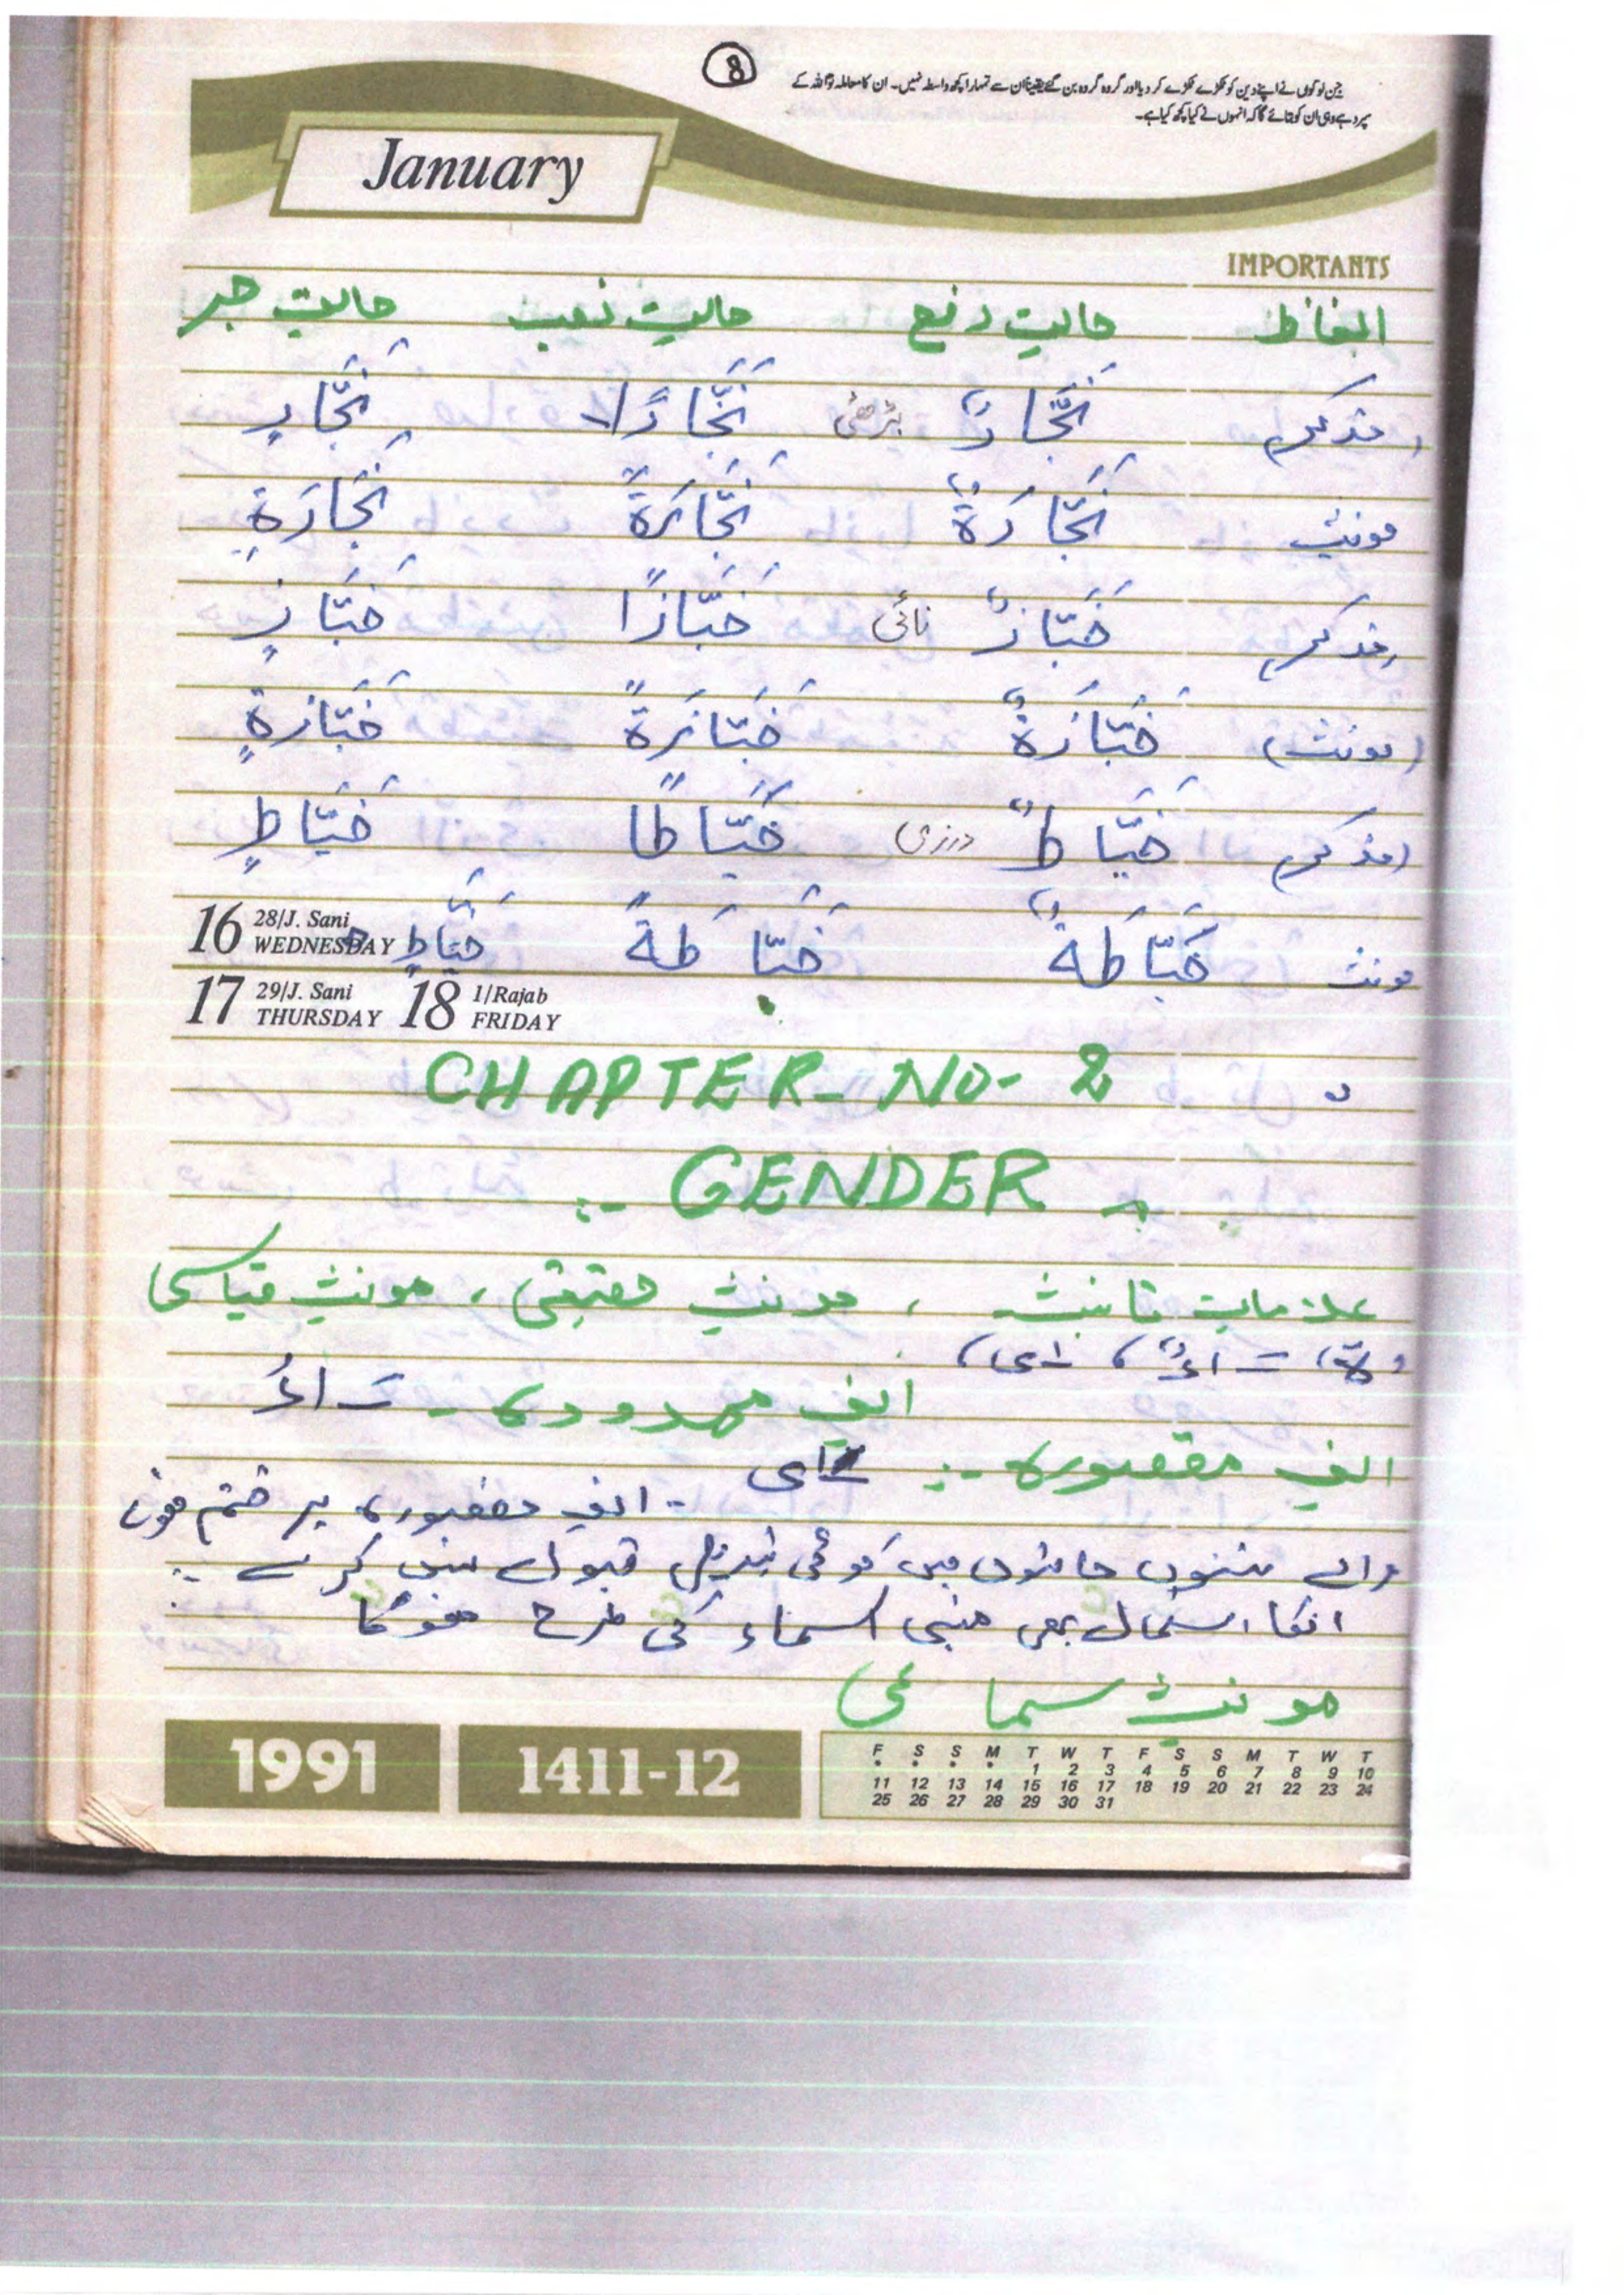 8
جن لوگوں نے اپنے دین کو ٹکڑے ٹکڑے کر دیا اور گروہ گروہ بن گئے یقیناً ان سے تمہارا کچھ واسطہ نہیں۔ ان کا معاملہ تو اللہ کے
سپرد ہے وہی ان کو بتائے گا کہ انہوں نے کیا کچھ کیا ہے۔
January
IMPORTANTS
الفاظ حالت رفع حالت نصب حالت جر
مذکر نَجَّارٌ بڑھئی نَجَّارًا نَجَّارٍ
مونث نَجَّارَةٌ نَجَّارَةً نَجَّارَةٍ
مذکر خَبَّازٌ نائی خَبَّازًا خَبَّازٍ
(مونث) خَبَّازَةٌ خَبَّازَةً خَبَّازَةٍ
(مذکر) خَيَّاطٌ درزی خَيَّاطًا خَيَّاطٍ
مونث خَيَّاطَةٌ خَيَّاطَةً
16 28/J. Sani WEDNESDAY
17 29/J. Sani THURSDAY 18 1/Rajab FRIDAY
CHAPTER- NO- 2
:- GENDER
علامات تانیث ، مونث حقیقی ، مونث قیاسی
ة، ـَ اءُ، ـٰی،
الف ممدودہ - ـَ اءُ
الف مقصورہ :- ـٰی
- الف مقصورہ پر ختم ہون
والے تینوں حالتوں میں کوئی تبدیلی قبول نہیں کرتے :-
انکا استمال بھی مبنی اسماء کی طرح ہوگا
مونث سماعی
1991 1411-12
F S S M T W T F S S M T W T
* * * * 1 2 3 4 5 6 7 8 9 10
11 12 13 14 15 16 17 18 19 20 21 22 23 24
25 26 27 28 29 30 31